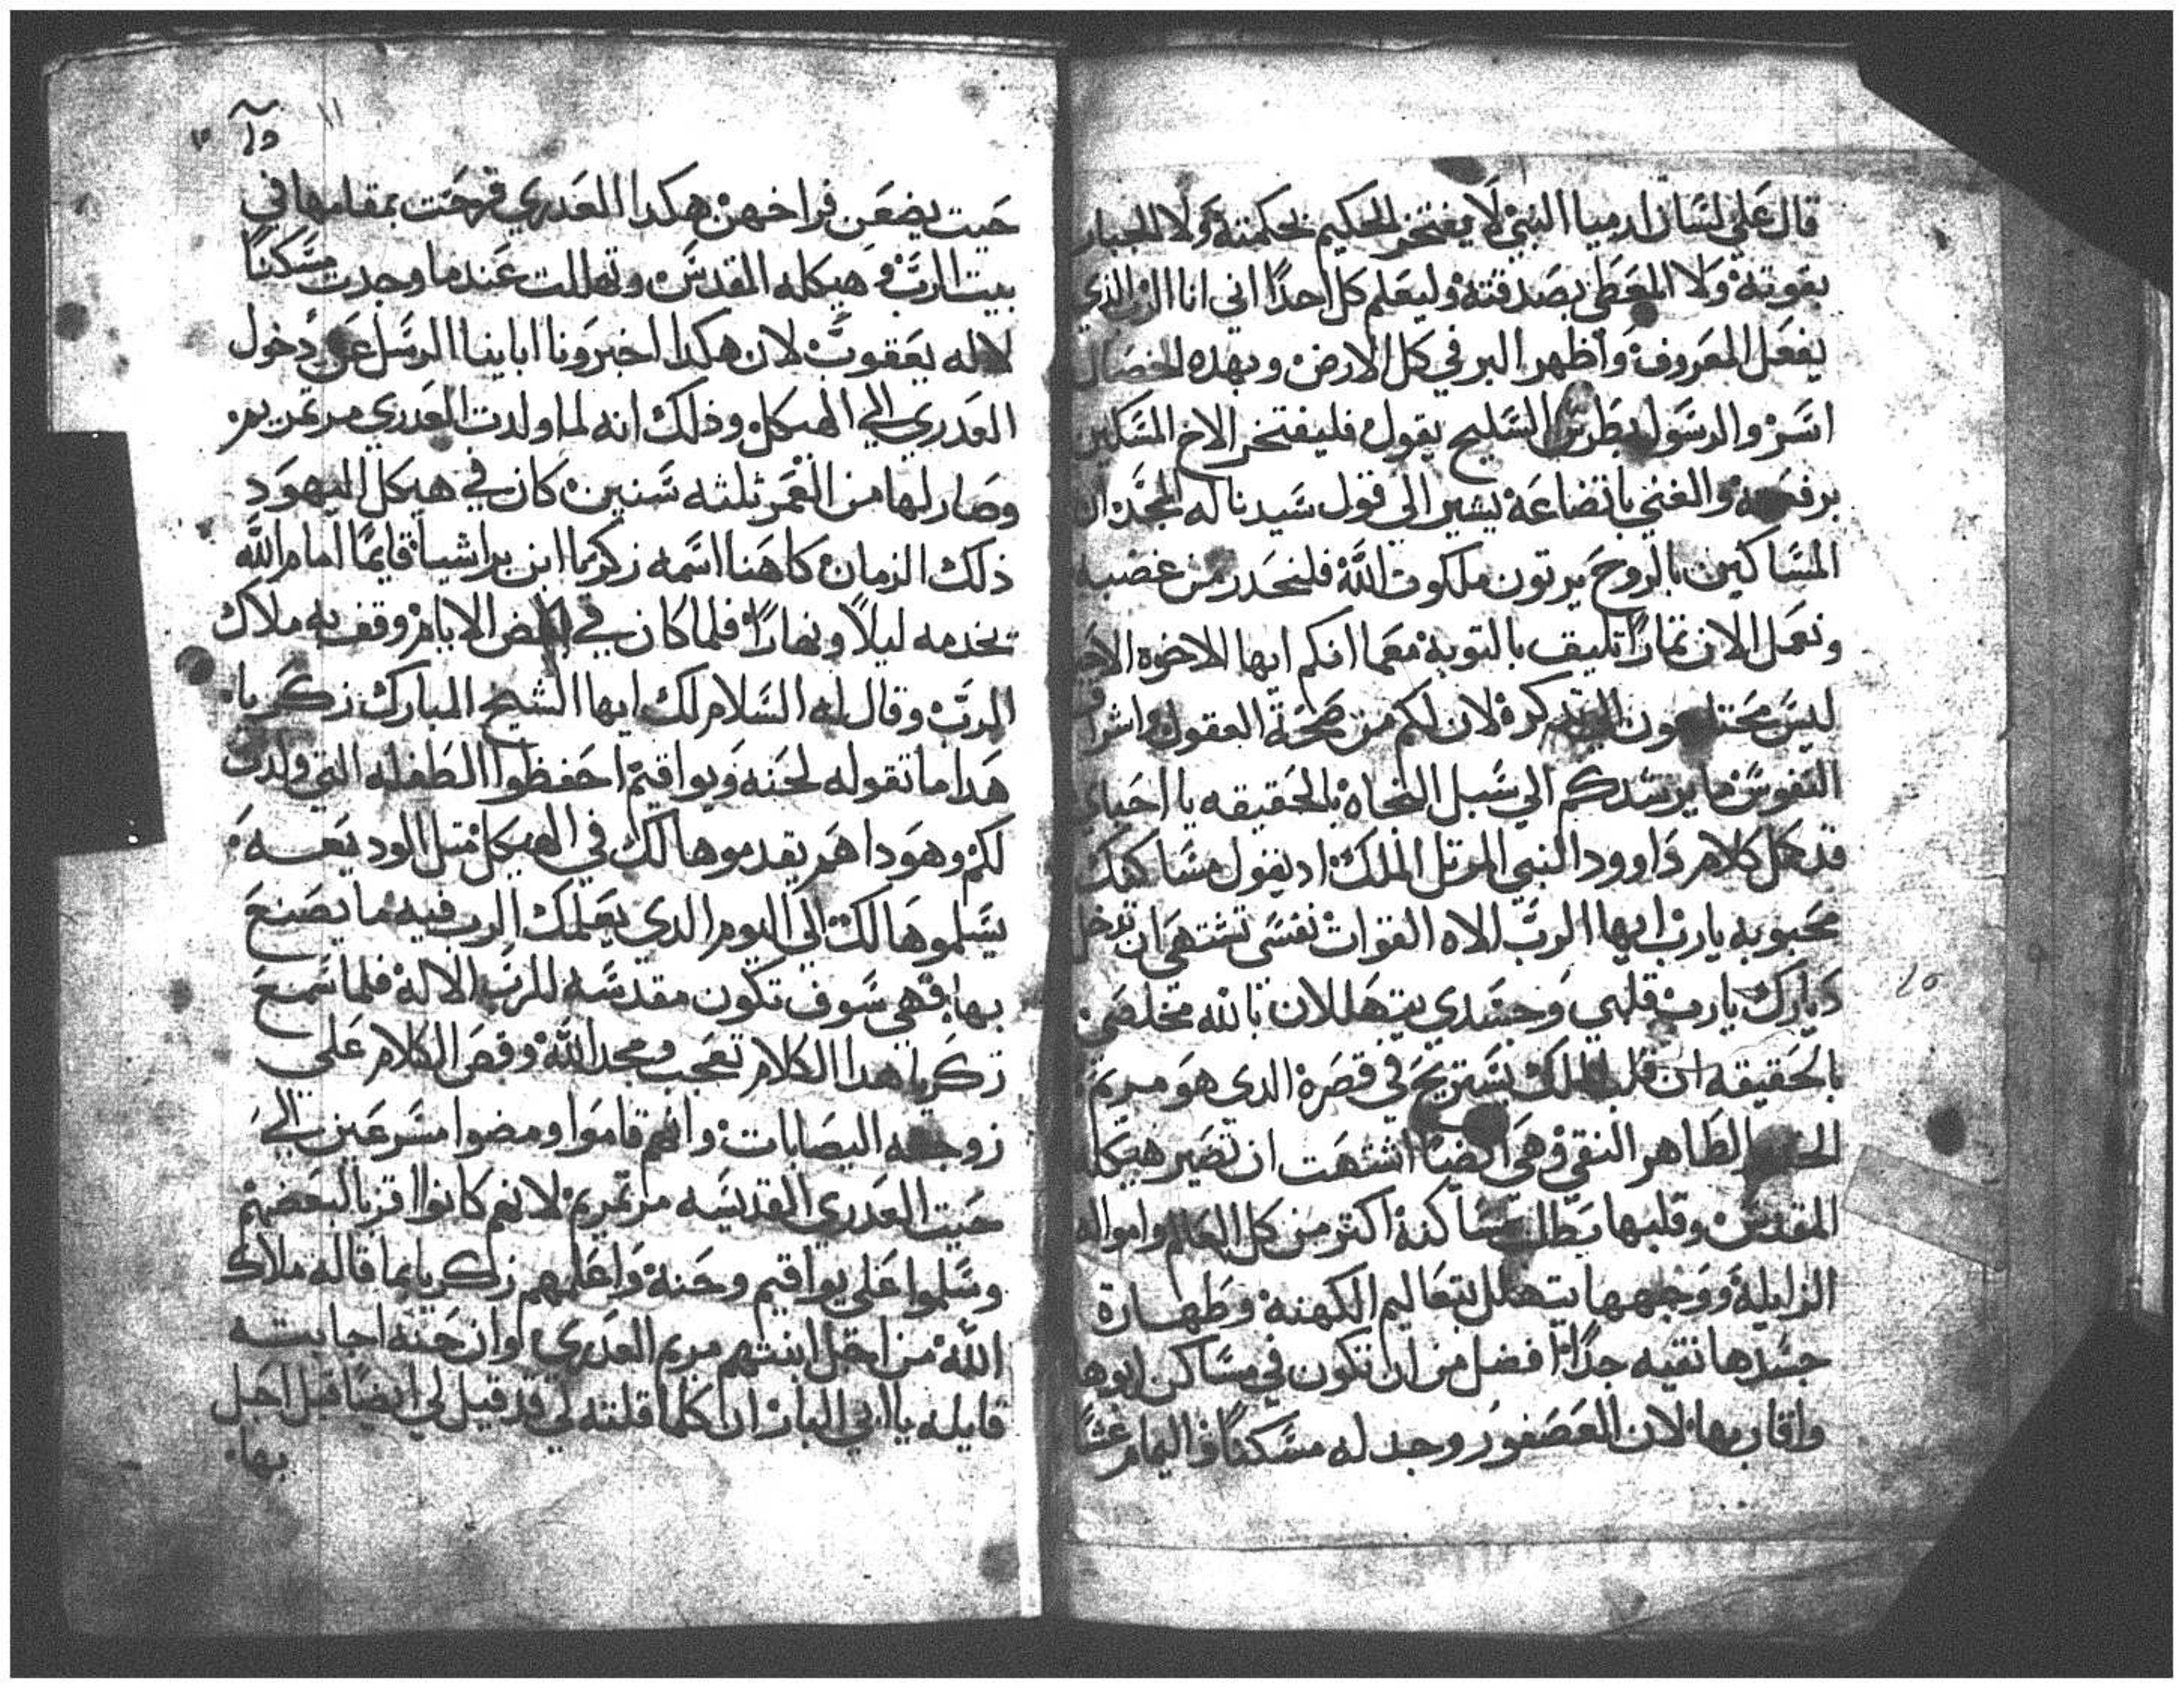 قال على لسان ارميا النبي لا يفتخر الحكيم بحكمته ولا الجبار
بقوته ولا المعطي بصدقته وليعلم كل احدًا اني انا الرب الذي
يفعل المعروف واظهر البر في كل الارض وبهده الخصال
اسر والرسول بطرس السليح يقول فليفتخر الاخ المسكين
برفعته والغني باتضاعه يشير الي قول سيدنا له المجد ان
المساكين بالروح يرتون ملكوت الله فلنحدر من غضبه
ونعمل الان تمارًا تليف بالتوبه معما انكم ايها الاخوه الاحبا
ليس محتاجون الي تدكره لان لكم من صحة العقول واشراف
النفوس ما يرشدكم الي سبل النجاه بالحقيقه يا احباي
قد كمل كلام داوود النبي المرتل الملك اد يقول مساكنك
محبوبه يارب ايها الرب الاه القوات نفسي تشتهي ان تدخل
ديارك يارب قلبي وجسدي يتهللان بالله مخلصي
بالحقيقه ان قلب الملك يستريح في قصره الدي هو مريم
الطاهر النقي وهي ايضًا اشتهت ان تصير هيكله
المقدس وقلبها يطلب مساكنة اكتر من كل العالم وامواله
الزايله ووجهها يتهلل بتعاليم الكهنه وطهارة
جسدها نقيه جدًا افضل من ان تكون في مساكن ابوها
واقاربها لان العصفور وجد له مسكنًا واليمام عشًا
حيت يضعن فراخهن هكدا العدري فرحت بمقامها في
بيت الرب وهيكله المقدس وتهللت عندما وجدت مسكنًا
لاله يعقوب لان هكدا اخبرونا اباينا الرسل عن دخول
العدري الي الهيكل وذلك انه لما ولدت العدري مرتمريم
وصار لها من العمر ثلثه سنين كان في هيكل اليهود
ذلك الزمان كاهنا اسمه زكريا ابن براشيا قايمًا امام الله
يخدمه ليلًا ونهارًا فلما كان في بعض الايام وقف به ملاك
الرب وقال له السلام لك ايها الشيخ المبارك زكريا
هدا ما تقوله لحنه ويواقيم احفظوا الطفله التي ولدت
لكم وهودا هم يقدموها لك في الهيكل متل الوديعه
يسلموها لك الي اليوم الدي يعلمك الرب فيه ما يصنع
بها فهي سوف تكون مقدسه للرب الاله فلما سمع
زكريا هدا الكلام تعجب ومجد الله وقص الكلام علي
زوجته اليصابات وانهم قاموا ومضوا مسرعين الي
حيت العدري القديسه مرتمريم لانهم كانوا اقربا لبعضهم
وسلموا علي يواقيم وحنه واعلمهم زكريا بما قاله ملاك
الله من اجل ابنتهم مريم العدري وان حنه اجابته
قايله يا ابي البار ان كلما قلته لي قد قيل لي ايضًا قبل احبل
بها